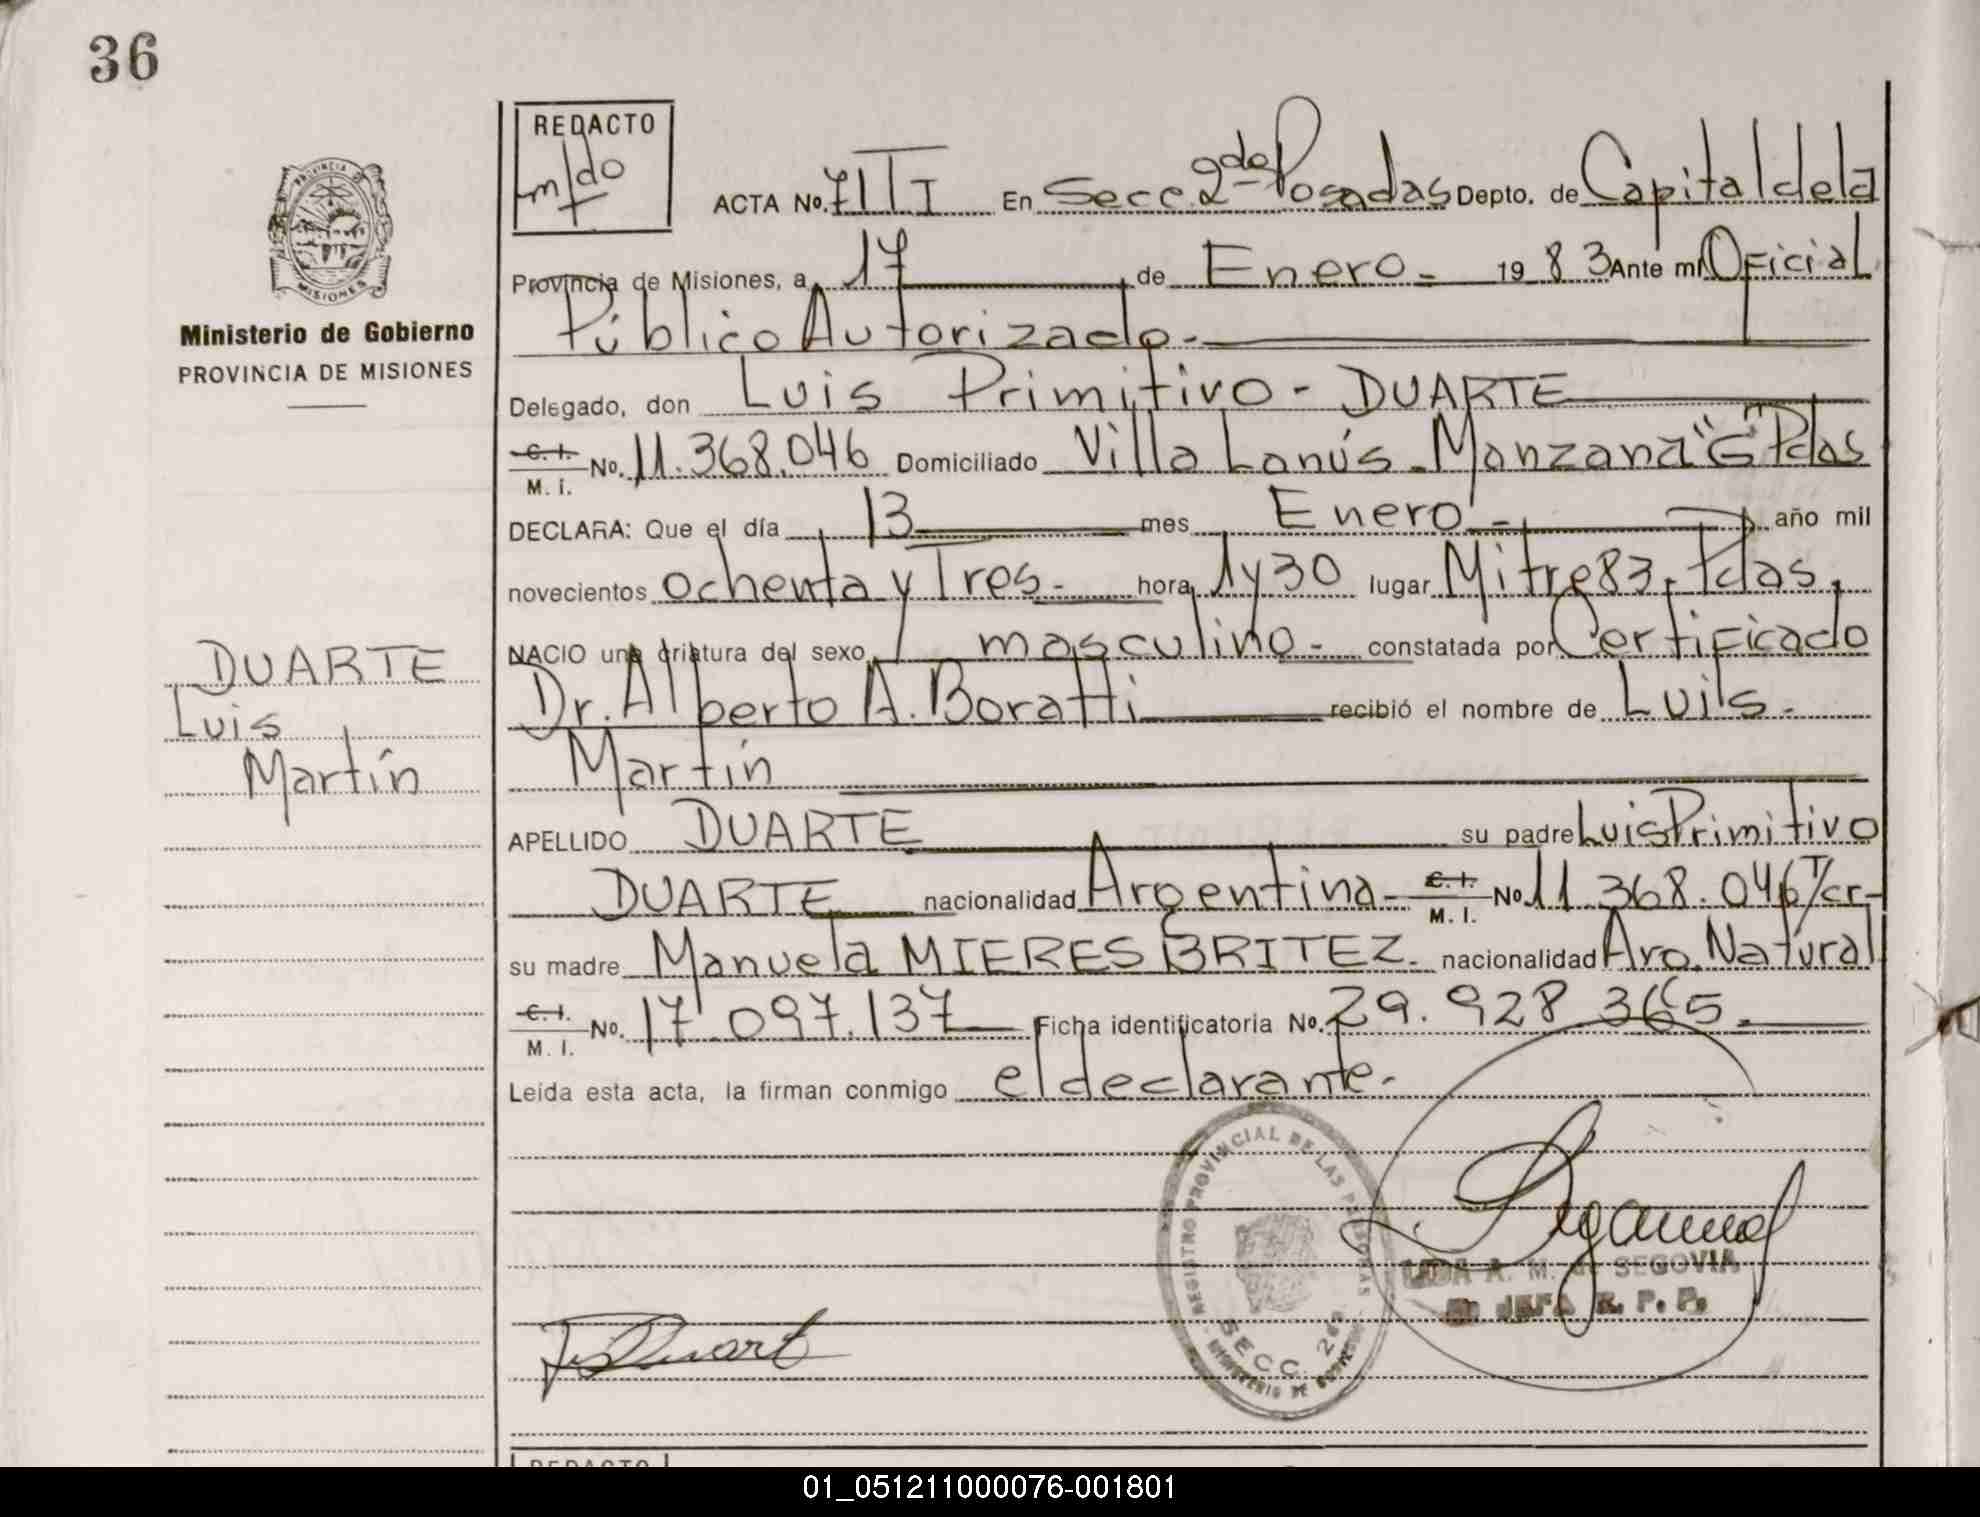 36
REDACTO
m/do
ACTA No. 71 T I En Secc. 2da Posadas Depto. de Capital de la
PROVINCIA DE
MISIONES
Provincia de Misiones, a 17 de Enero - 19 83 Ante mí Oficial
Ministerio de Gobierno
Público Autorizado -
PROVINCIA DE MISIONES
Delegado, don Luis Primitivo - DUARTE
C. I. M. I. No. 11.368.046 Domiciliado Villa Lanús - Manzana "G" Pdas
DECLARA: Que el día 13 mes Enero - año mil
novecientos ochenta y Tres - hora 1 y 30 lugar Mitre 83, Pdas.
NACIO una criatura del sexo masculino - constatada por Certificado
DUARTE
Dr. Alberto A. Boratti recibió el nombre de Luis -
Luis
Martín
Martín
APELLIDO DUARTE su padre Luis Primitivo
DUARTE nacionalidad Argentina - C. I. M. I. No 11.368.046 T/cr-
su madre Manuela MIERES BRITEZ - nacionalidad Arg. Natural
C. I. M. I. No. 17.097.137 Ficha identificatoria No. 29.928.365 -
Leída esta acta, la firman conmigo el declarante -
REGISTRO PROVINCIAL DE LAS PERSONAS
SECC. 2da
MINISTERIO DE GOBIERNO
A. M. de SEGOVIA
JEFA R. P. P.
REDACTO
01_051211000076-001801